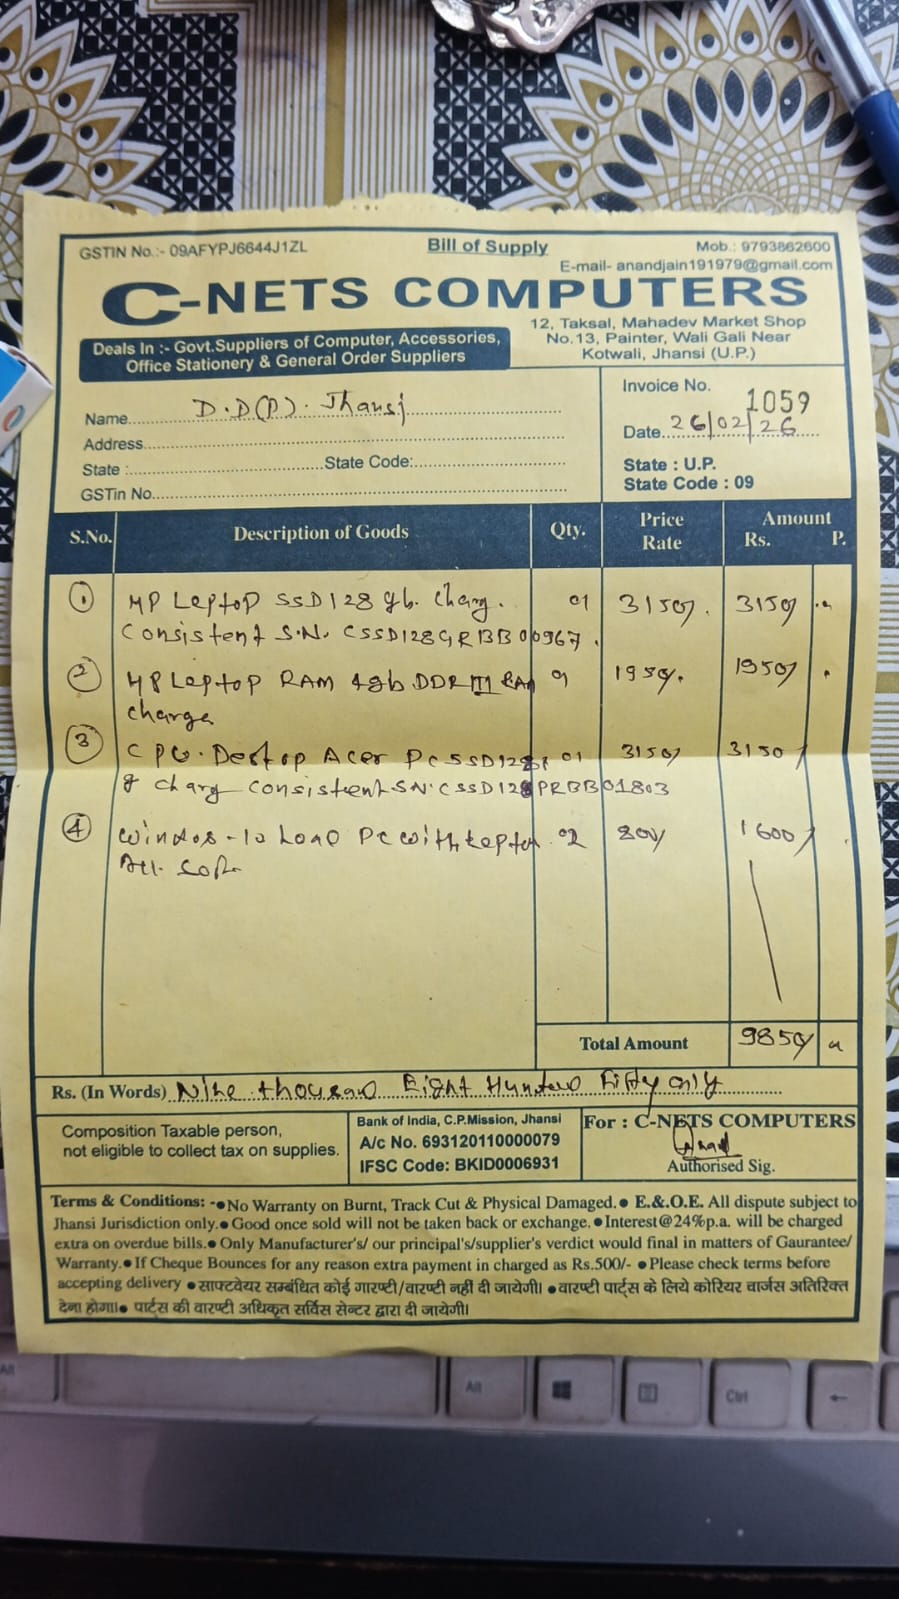 GSTIN No.:- 09AFYPJ6644J1ZL Bill of Supply Mob.: 9793862600
E-mail- anandjain191979@gmail.com
C-NETS COMPUTERS
Deals In :- Govt.Suppliers of Computer, Accessories,
Office Stationery & General Order Suppliers
12, Taksal, Mahadev Market Shop
No.13, Painter, Wali Gali Near
Kotwali, Jhansi (U.P.)
Name D.D(P). Jhansi
Address
State : State Code:
GSTin No.
Invoice No. 1059
Date 26/02/26
State : U.P.
State Code : 09
S.No. Description of Goods Qty. Price Rate Amount Rs. P.
1 HP Leptop SSD 128 gb. charg. 01 3150/. 3150/
Consistent S.N. CSSD128GRBB00967.
2 HP Leptop RAM 4gb DDR III RAM 01 1950/. 1950/
charge
3 CPU. Destop Acer PC SSD128 01 3150/ 3150/
& charg Consistent SN. CSSD128PRBB01803
4 Windos-10 Load PC with Leptop 02 800/ 1600/
All Soft.
Total Amount 9850/
Rs. (In Words) Nine thousand Eight Hundred Fifty only
Composition Taxable person,
not eligible to collect tax on supplies.
Bank of India, C.P.Mission, Jhansi
A/c No. 693120110000079
IFSC Code: BKID0006931
For : C-NETS COMPUTERS
Authorised Sig.
Terms & Conditions: -● No Warranty on Burnt, Track Cut & Physical Damaged.● E.&.O.E. All dispute subject to
Jhansi Jurisdiction only.● Good once sold will not be taken back or exchange. ● Interest@24%p.a. will be charged
extra on overdue bills.● Only Manufacturer's/ our principal's/supplier's verdict would final in matters of Gaurantee/
Warranty.● If Cheque Bounces for any reason extra payment in charged as Rs.500/- ● Please check terms before
accepting delivery ● साफ्टवेयर सम्बंधित कोई गारण्टी/वारण्टी नहीं दी जायेगी। ● वारण्टी पार्ट्स के लिये कोरियर चार्जस अतिरिक्त
देना होगा।● पार्ट्स की वारण्टी अधिकृत सर्विस सेन्टर द्वारा दी जायेगी।
Alt
Alt
Ctrl